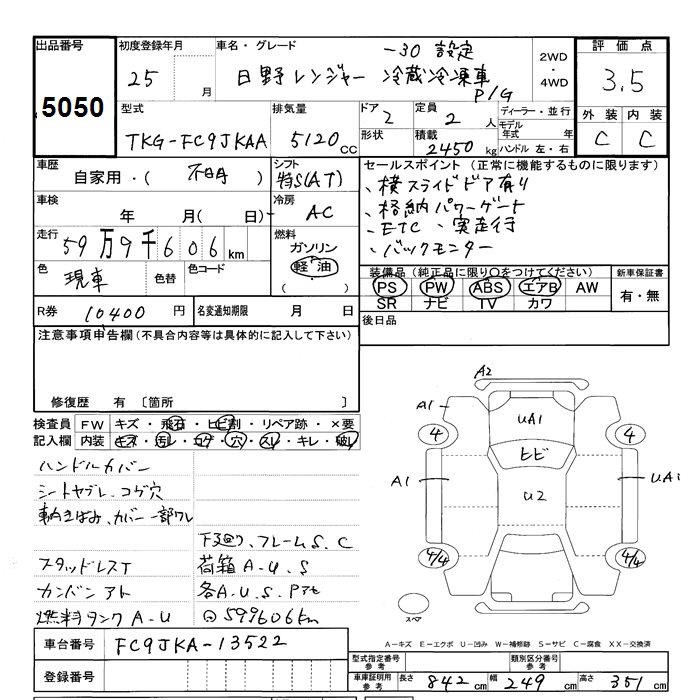 出品番号
5050
初度登録年月
25 月
車名・グレード
-30 設定
日野レンジャー 冷蔵冷凍車
P/G
2WD
・
4WD
評価点
3.5
外装 内装
C C
型式
TKG-FC9JKAA
排気量
5120 CC
ドア 2
形状
定員 2 人
積載 2450 kg
ディーラー・並行
モデル
年式 年
ハンドル 左・右
車歴
自家用・( 不明 )
シフト
特S(AT)
車検
年 月( 日)
冷房
AC
走行
59万9千606 km
燃料
ガソリン
軽油
( )
色
現車
色替
色コード
R券 10400 円
名変通知期限 月 日
セールスポイント (正常に機能するものに限ります)
、横スライドドア有り
、格納パワーゲート
、ETC、実走行
、バックモニター
装備品 (純正品に限り○をつけてください)
PS PW ABS エアB AW
SR ナビ TV カワ
新車保証書
有・無
後日品
注意事項申告欄(不具合内容等は具体的に記入して下さい)
修復歴 有 〔箇所 〕
検査員
記入欄
FW キズ・飛石・ヒビ割・リペア跡・×要
内装 キズ・汚レ・コゲ・穴・スレ・キレ・破レ
ハンドルカバー
シートヤブレ、コゲ穴
車内きばみ、カバー一部ワレ
下廻り、フレームS、C
スタッドレスT
荷箱A、U、S
カンバンアト
各A、U、S、Pアセ
燃料タンクA-U
599606km
車台番号 FC9JKA-13522
登録番号
A2
A1
UA1
4
4
ヒビ
A1
U2
UA
4/4
4/4
スペア
A-キズ E-エクボ U-凹み W-補修跡 S-サビ C-腐食 XX-交換済
型式指定番号
参考
類別区分番号
参考
車庫証明用
参考
長さ 842 cm 幅 249 cm 高さ 351 cm